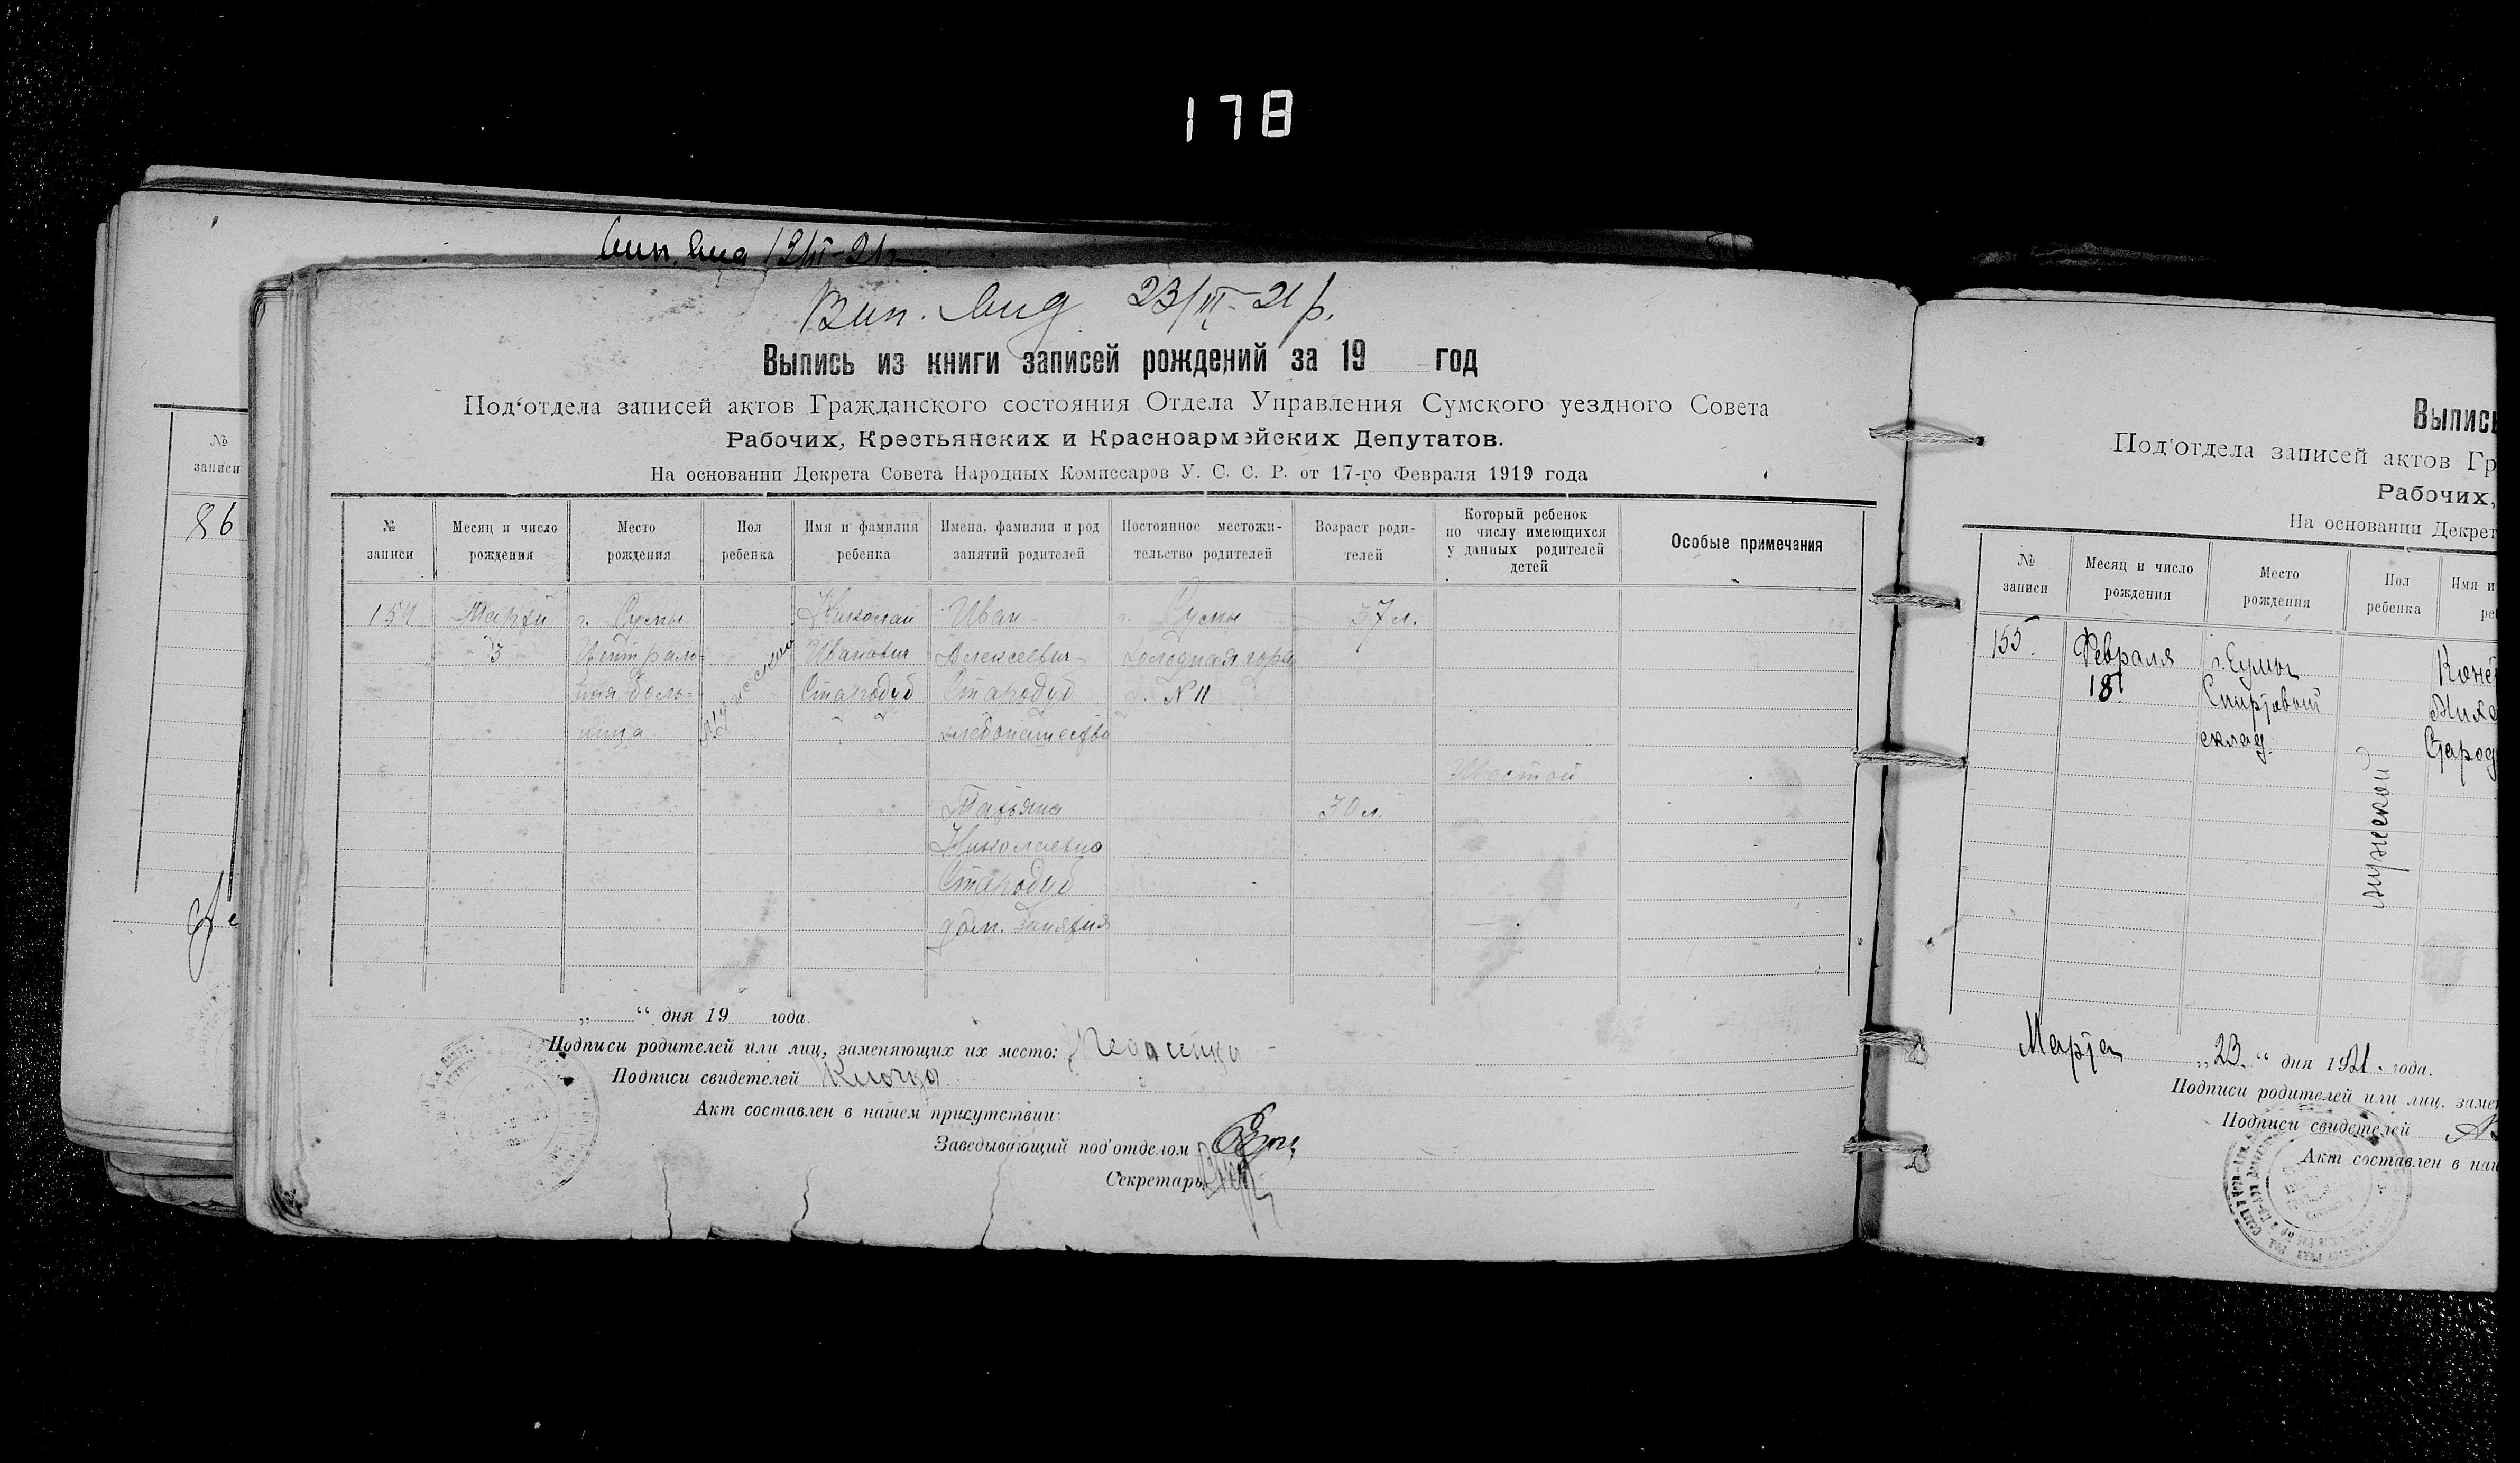 178
12/III-21р
Вип. вид 23/III-21 р.
Выпись из книги записей рождений за 19 год
Под'отдела записей актов Гражданского состояния Отдела Управления Сумского уездного Совета
Рабочих, Крестьянских и Красноармейских Депутатов.
На основании Декрета Совета Народных Комиссаров У. С. С. Р. от 17-го Февраля 1919 года
№ записи
Месяц и число рождения
Место рождения
Пол ребенка
Имя и фамилия ребенка
Имена, фамилии и род занятий родителей
Постоянное местожи-
тельство родителей
Возраст роди-
телей
Который ребенок
по числу имеющихся
у данных родителей
детей
Особые примечания
154
Марта
3
г. Сумы
Централь-
ная боль-
ница
Мужеский
Николай
Иванович
Стародуб
Иван
Алексеевич
Стародуб
хлебопашество
г. Сумы
Холодная гора
д. № 11
37 л.
Шестой
Татьяна
Николаевна
Стародуб
дом. занятия
30 л.
„ “ дня 19 года.
Подписи родителей или лиц, заменяющих их место:
Подписи свидетелей Клочко
Акт составлен в нашем присутствии:
Заведывающий под'отделом
Секретарь
№
записи
86
Выпись
Под'отдела записей актов Гр
Рабочих,
На основании Декрет
№ записи
Месяц и число рождения
Место рождения
Пол ребенка
Имя и
ре
155.
Февраля
18
г. Сумы
Спиртовой
склад.
мужеской
Стород
Марта „23“ дня 1921 года.
Подписи родителей или лиц, заме
Подписи свидетелей
Акт составлен в наш